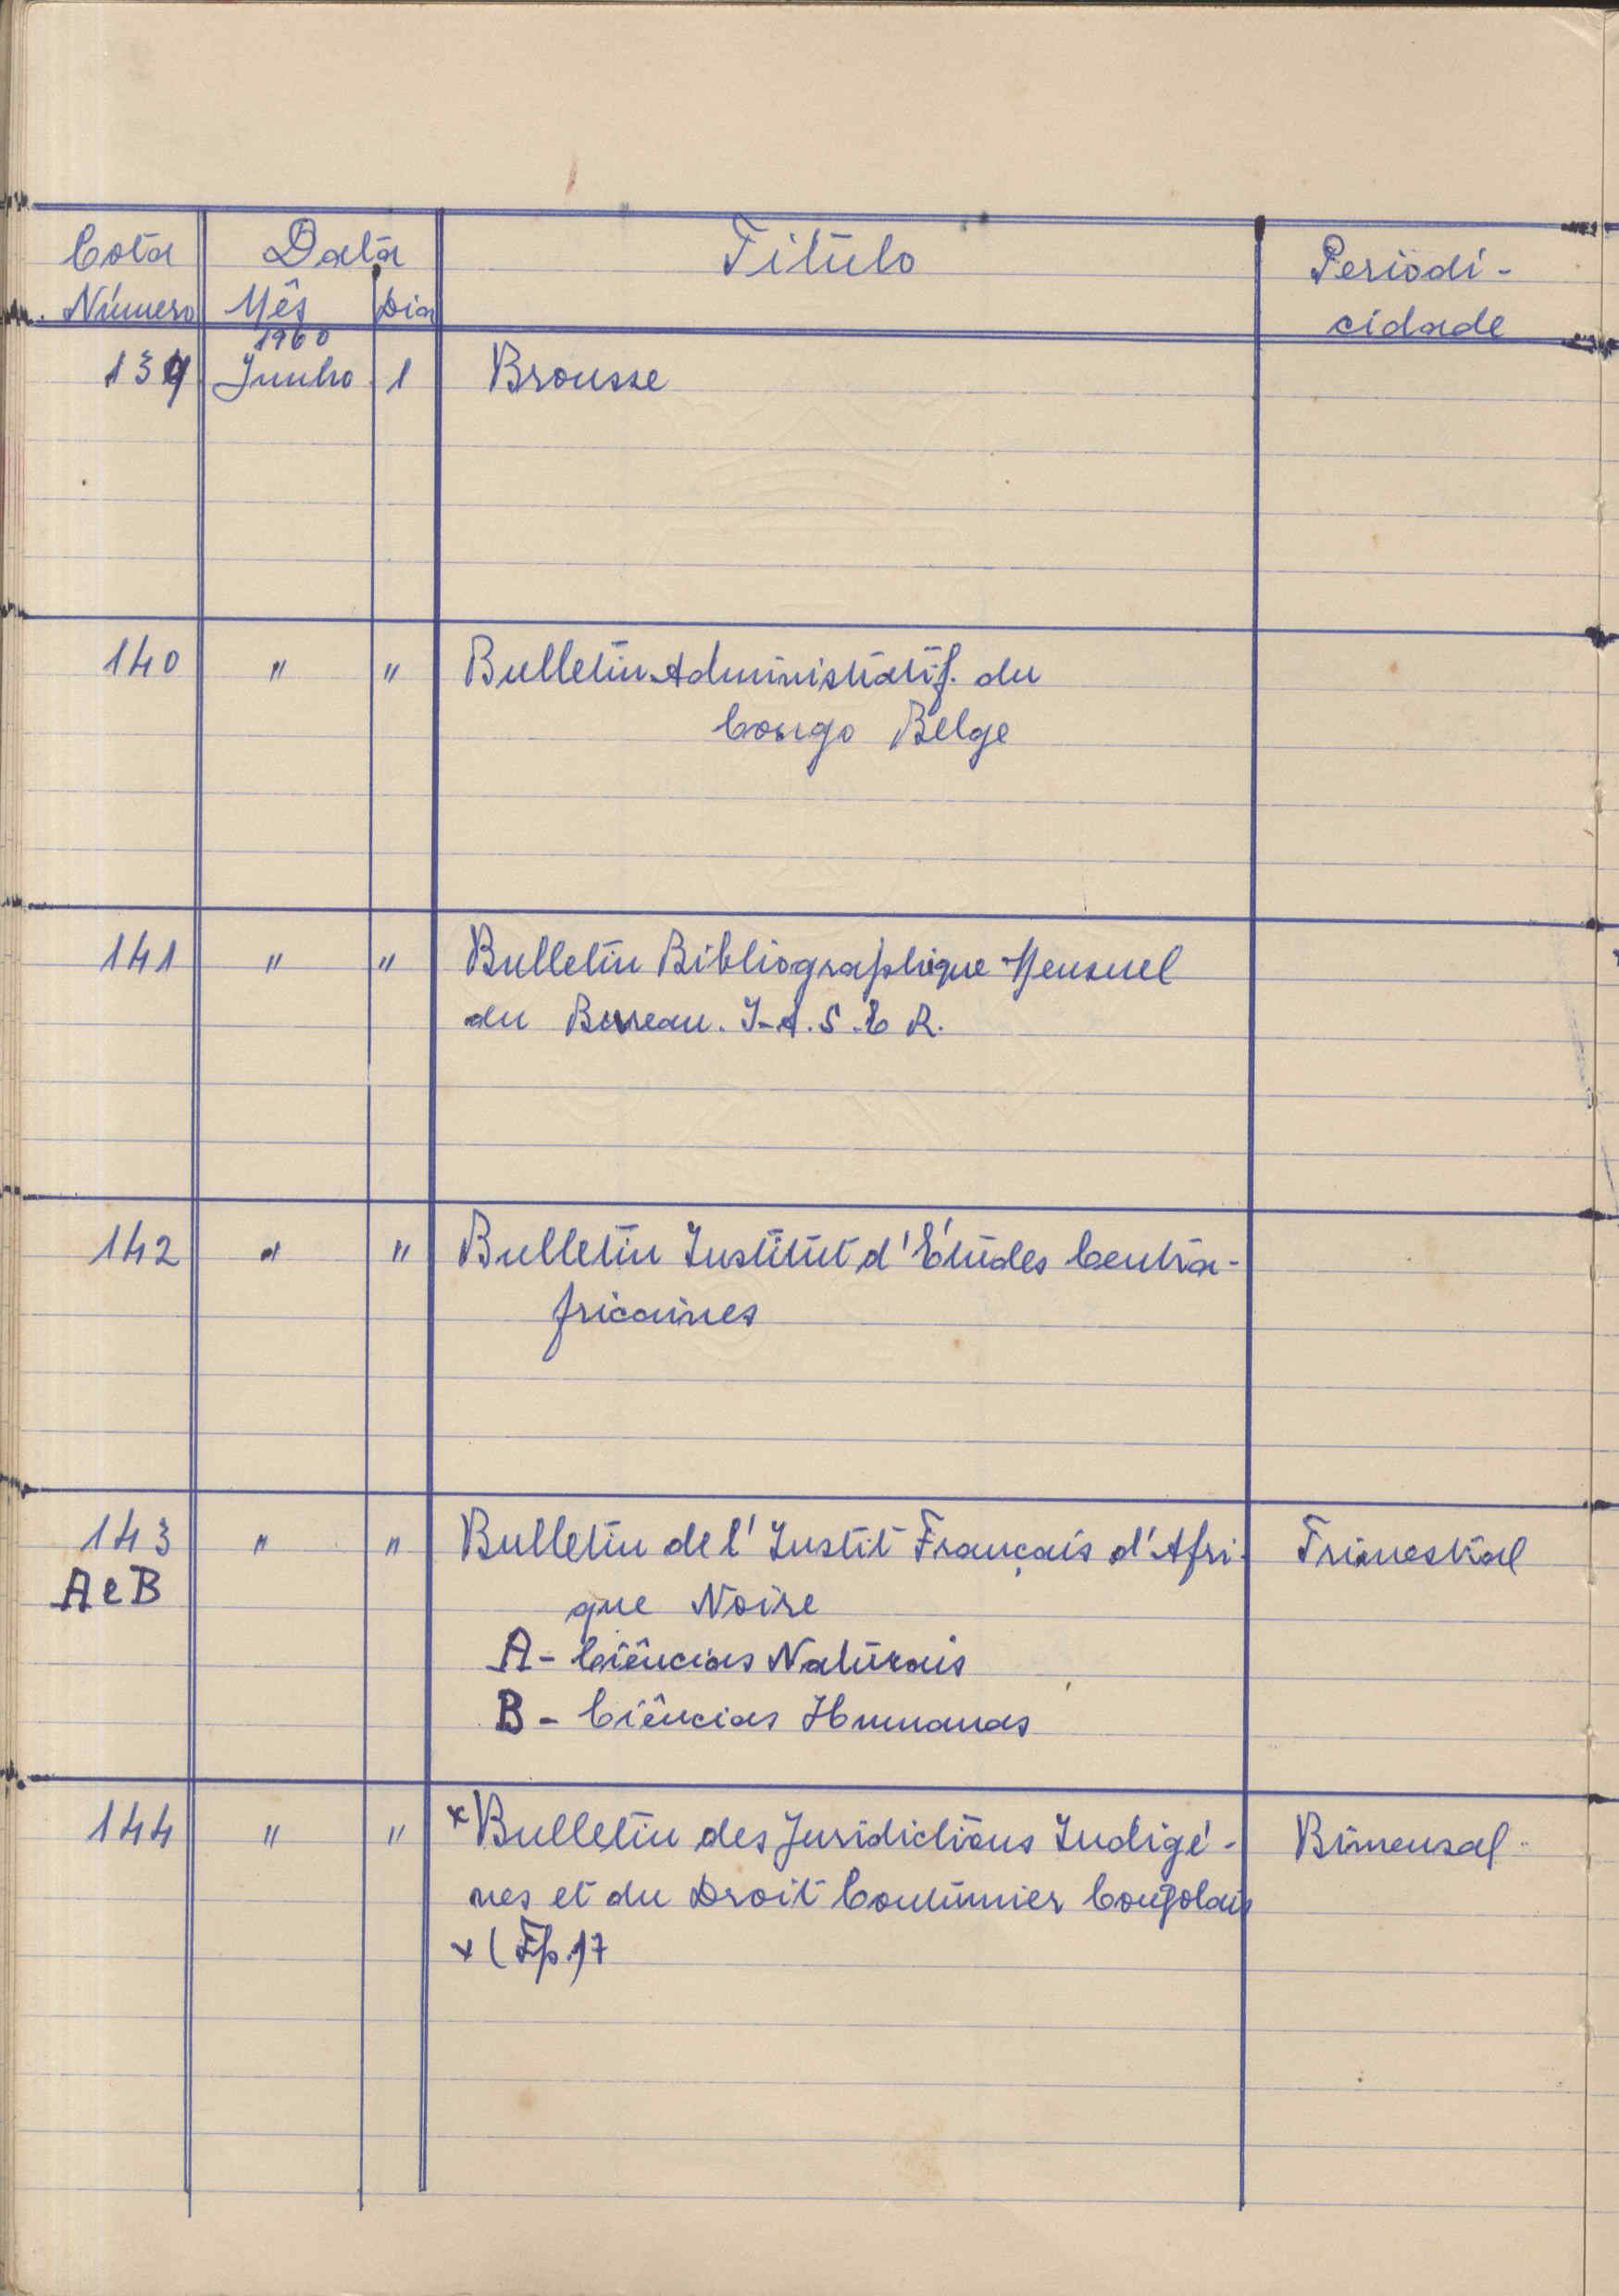 Cota Data Titulo Periodi-
Número Mês Dia cidade
1960
139 Junho 1 Brousse
140 " " Bulletin Administratif. du
Congo Belge
141 " " Bulletin Bibliographique Mensuel
du Bureau. I-A.S.E R.
142 " " Bulletin Institut d'Études Centra-
fricaines
143 " " Bulletin de l'Instit Français d'Afri- Trimestral
A e B que Noire
A - Ciências Naturais
B - Ciências Humanas
144 " " x Bulletin des Juridictions Indigé- Bimensal
nes et du Droit Coutumier Congolais
x (Ep.)7